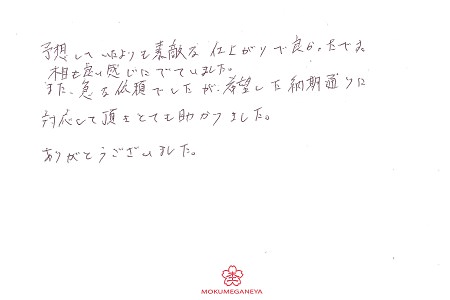 予想していたよりも素敵な仕上がりで良かったです。
木目も良い感じにでていました。
また、急な依頼でしたが、希望した納期通りに
対応して頂きとても助かりました。
ありがとうございました。
MOKUMEGANEYA